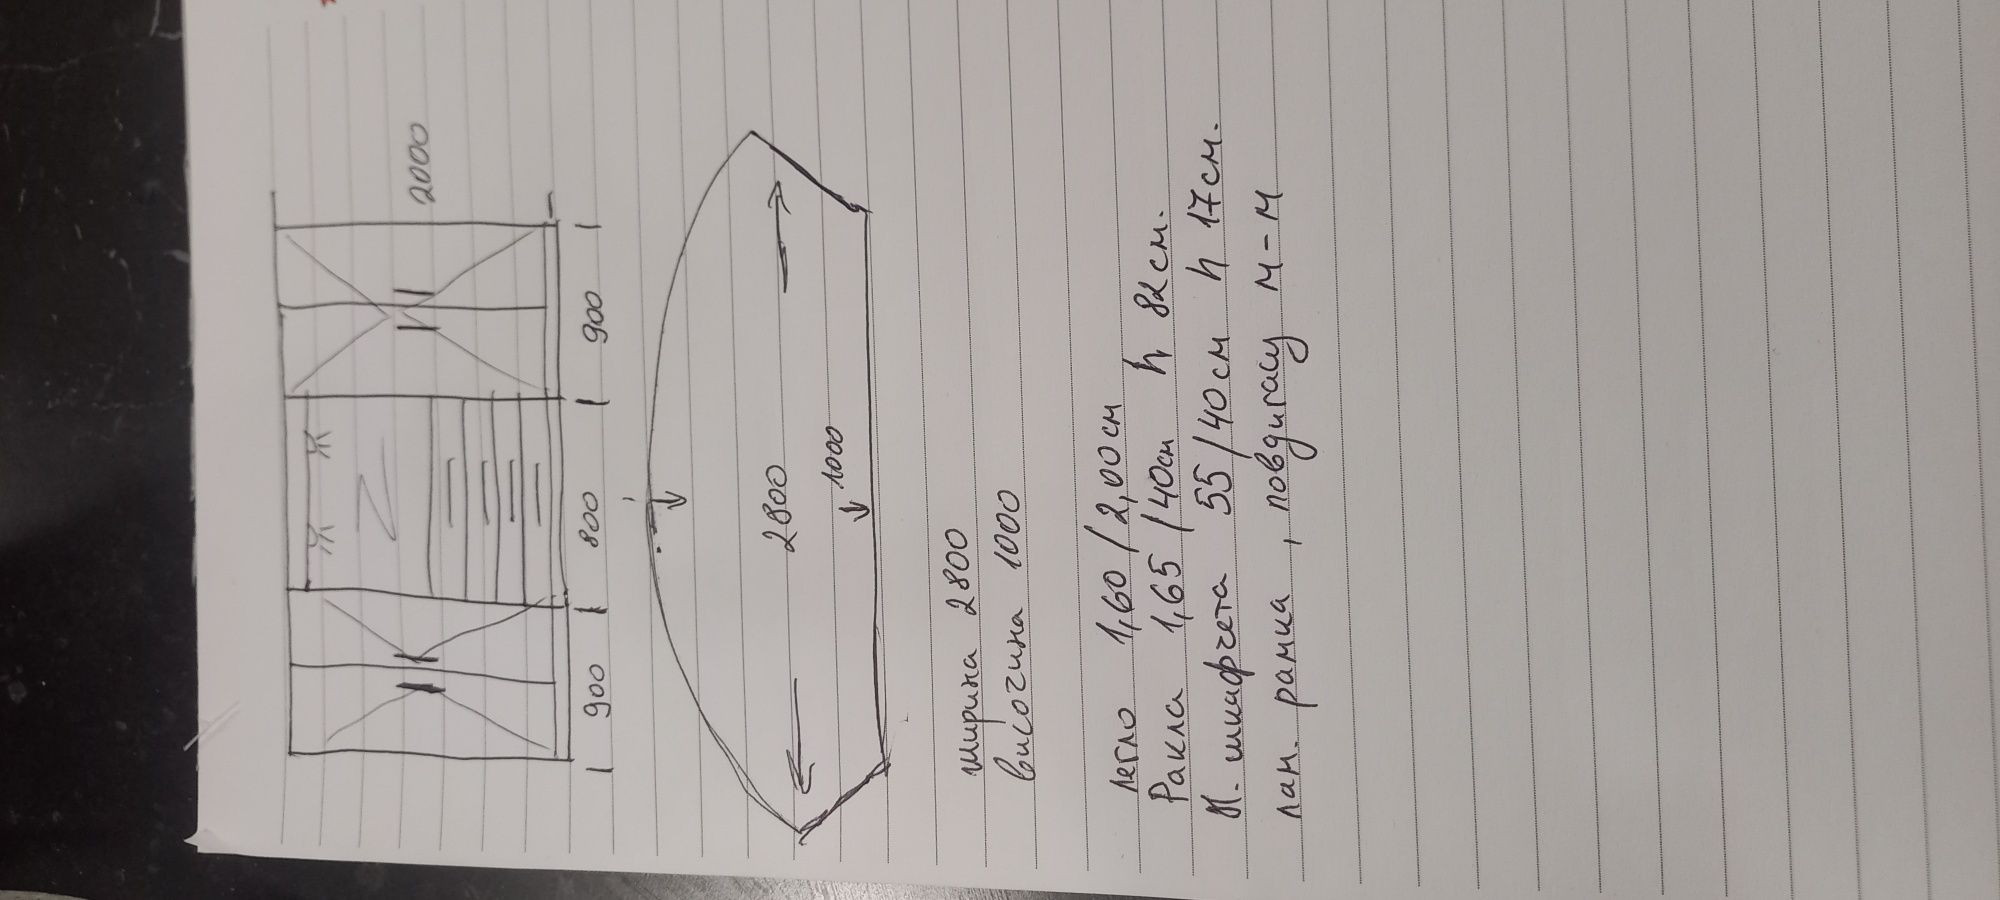 2000
900
800
900
2800
1000
ширина 2800
височина 1000
легло 1,60/2,00см
Ракла 1,65/40см h 82см.
Н. шкафчета 55/40см h 17см.
лам. рамка, повдигащ м-м